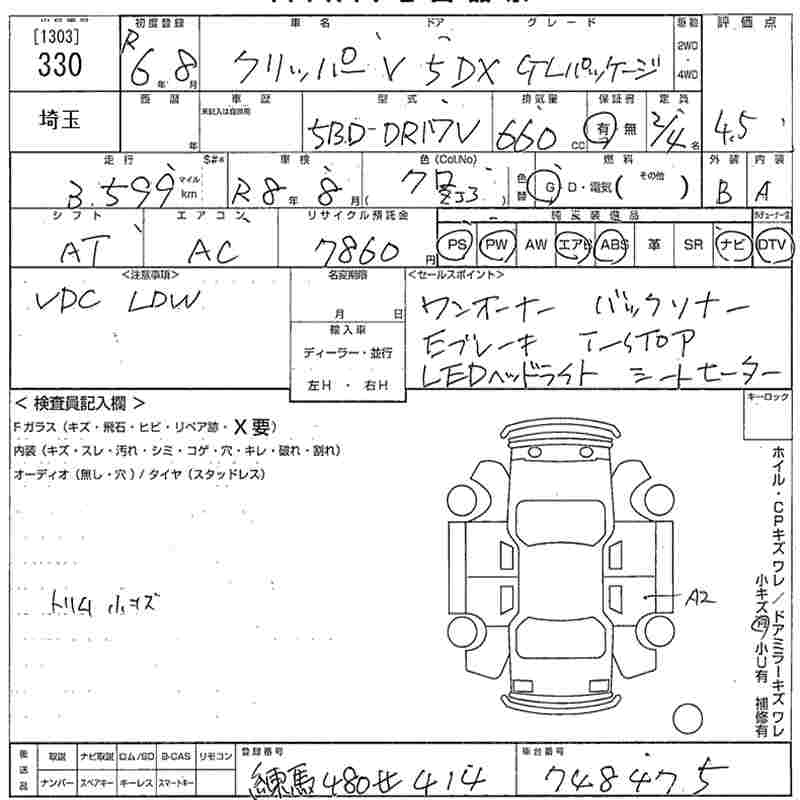 [1303]
330
初度登録
R 6年 8月
車名 ドア グレード
クリッパーV 5 DX GLパッケージ
駆動
2WD
4WD
評価点
4.5
埼玉
西暦 年
車歴
未記入は自家用
型式
5BD-DR17V
排気量
660 CC
保証書
有・無
定員
2/4名
走行
3.599
マイル
km
S#*
車検
R8年 8月
色(Col.No)
クロ
ZJ3
色替
燃料
G・D・電気( その他 )
外装
B
内装
A
シフト
AT
エアコン
AC
リサイクル預託金
7860円
純正装備品
PS PW AW エアB ABS 革 SR ナビ DTV
<注意事項>
VDC LDW
名変期限
月 日
輸入車
ディーラー・並行
左H ・ 右H
<セールスポイント>
ワンオーナー バックソナー
Eブレーキ I-STOP
LEDヘッドライト シートヒーター
< 検査員記入欄 >
Fガラス(キズ・飛石・ヒビ・リペア跡・X要)
内装(キズ・スレ・汚れ・シミ・コゲ・穴・キレ・破れ・割れ)
オーディオ(無し・穴)/タイヤ(スタッドレス)
トリム 小キズ
キーロック
A2
ホイル・CPキズ ワレ / ドアミラーキズ ワレ
小キズ有 小U有 補修有
後送品
取説 ナビ取説 ロム/SD B-CAS リモコン
ナンバー スペアキー キーレス スマートキー
登録番号
練馬 480 せ 414
車台番号
748475